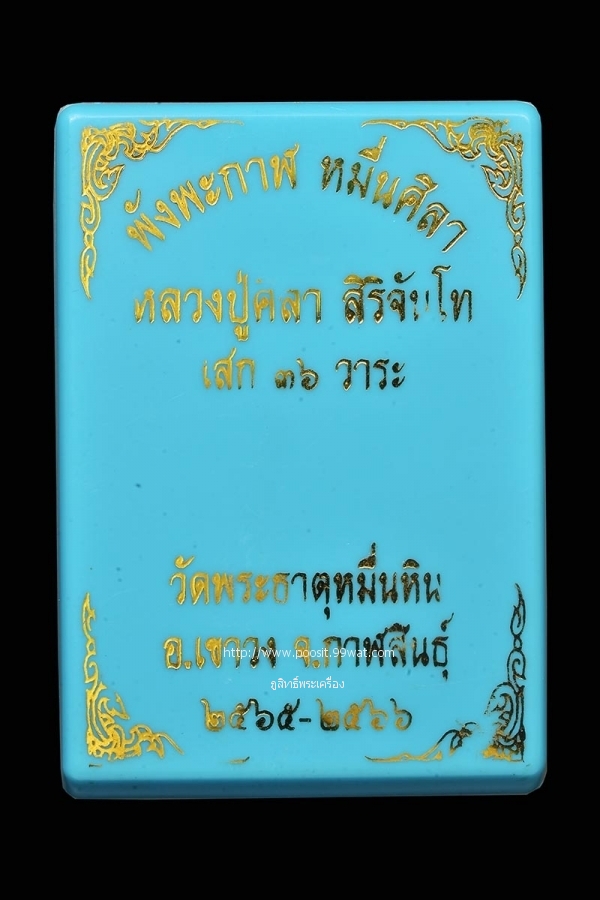 พังพะกาฬ หมื่นศิลา
หลวงปู่ศิลา สิริจันโท
เสก ๓๖ วาระ
วัดพระธาตุหมื่นหิน
อ.เขาวง จ.กาฬสินธุ์
http://www.poosit.99wat.com
ภูสิทธิ์พระเครื่อง
๒๕๖๕-๒๕๖๖